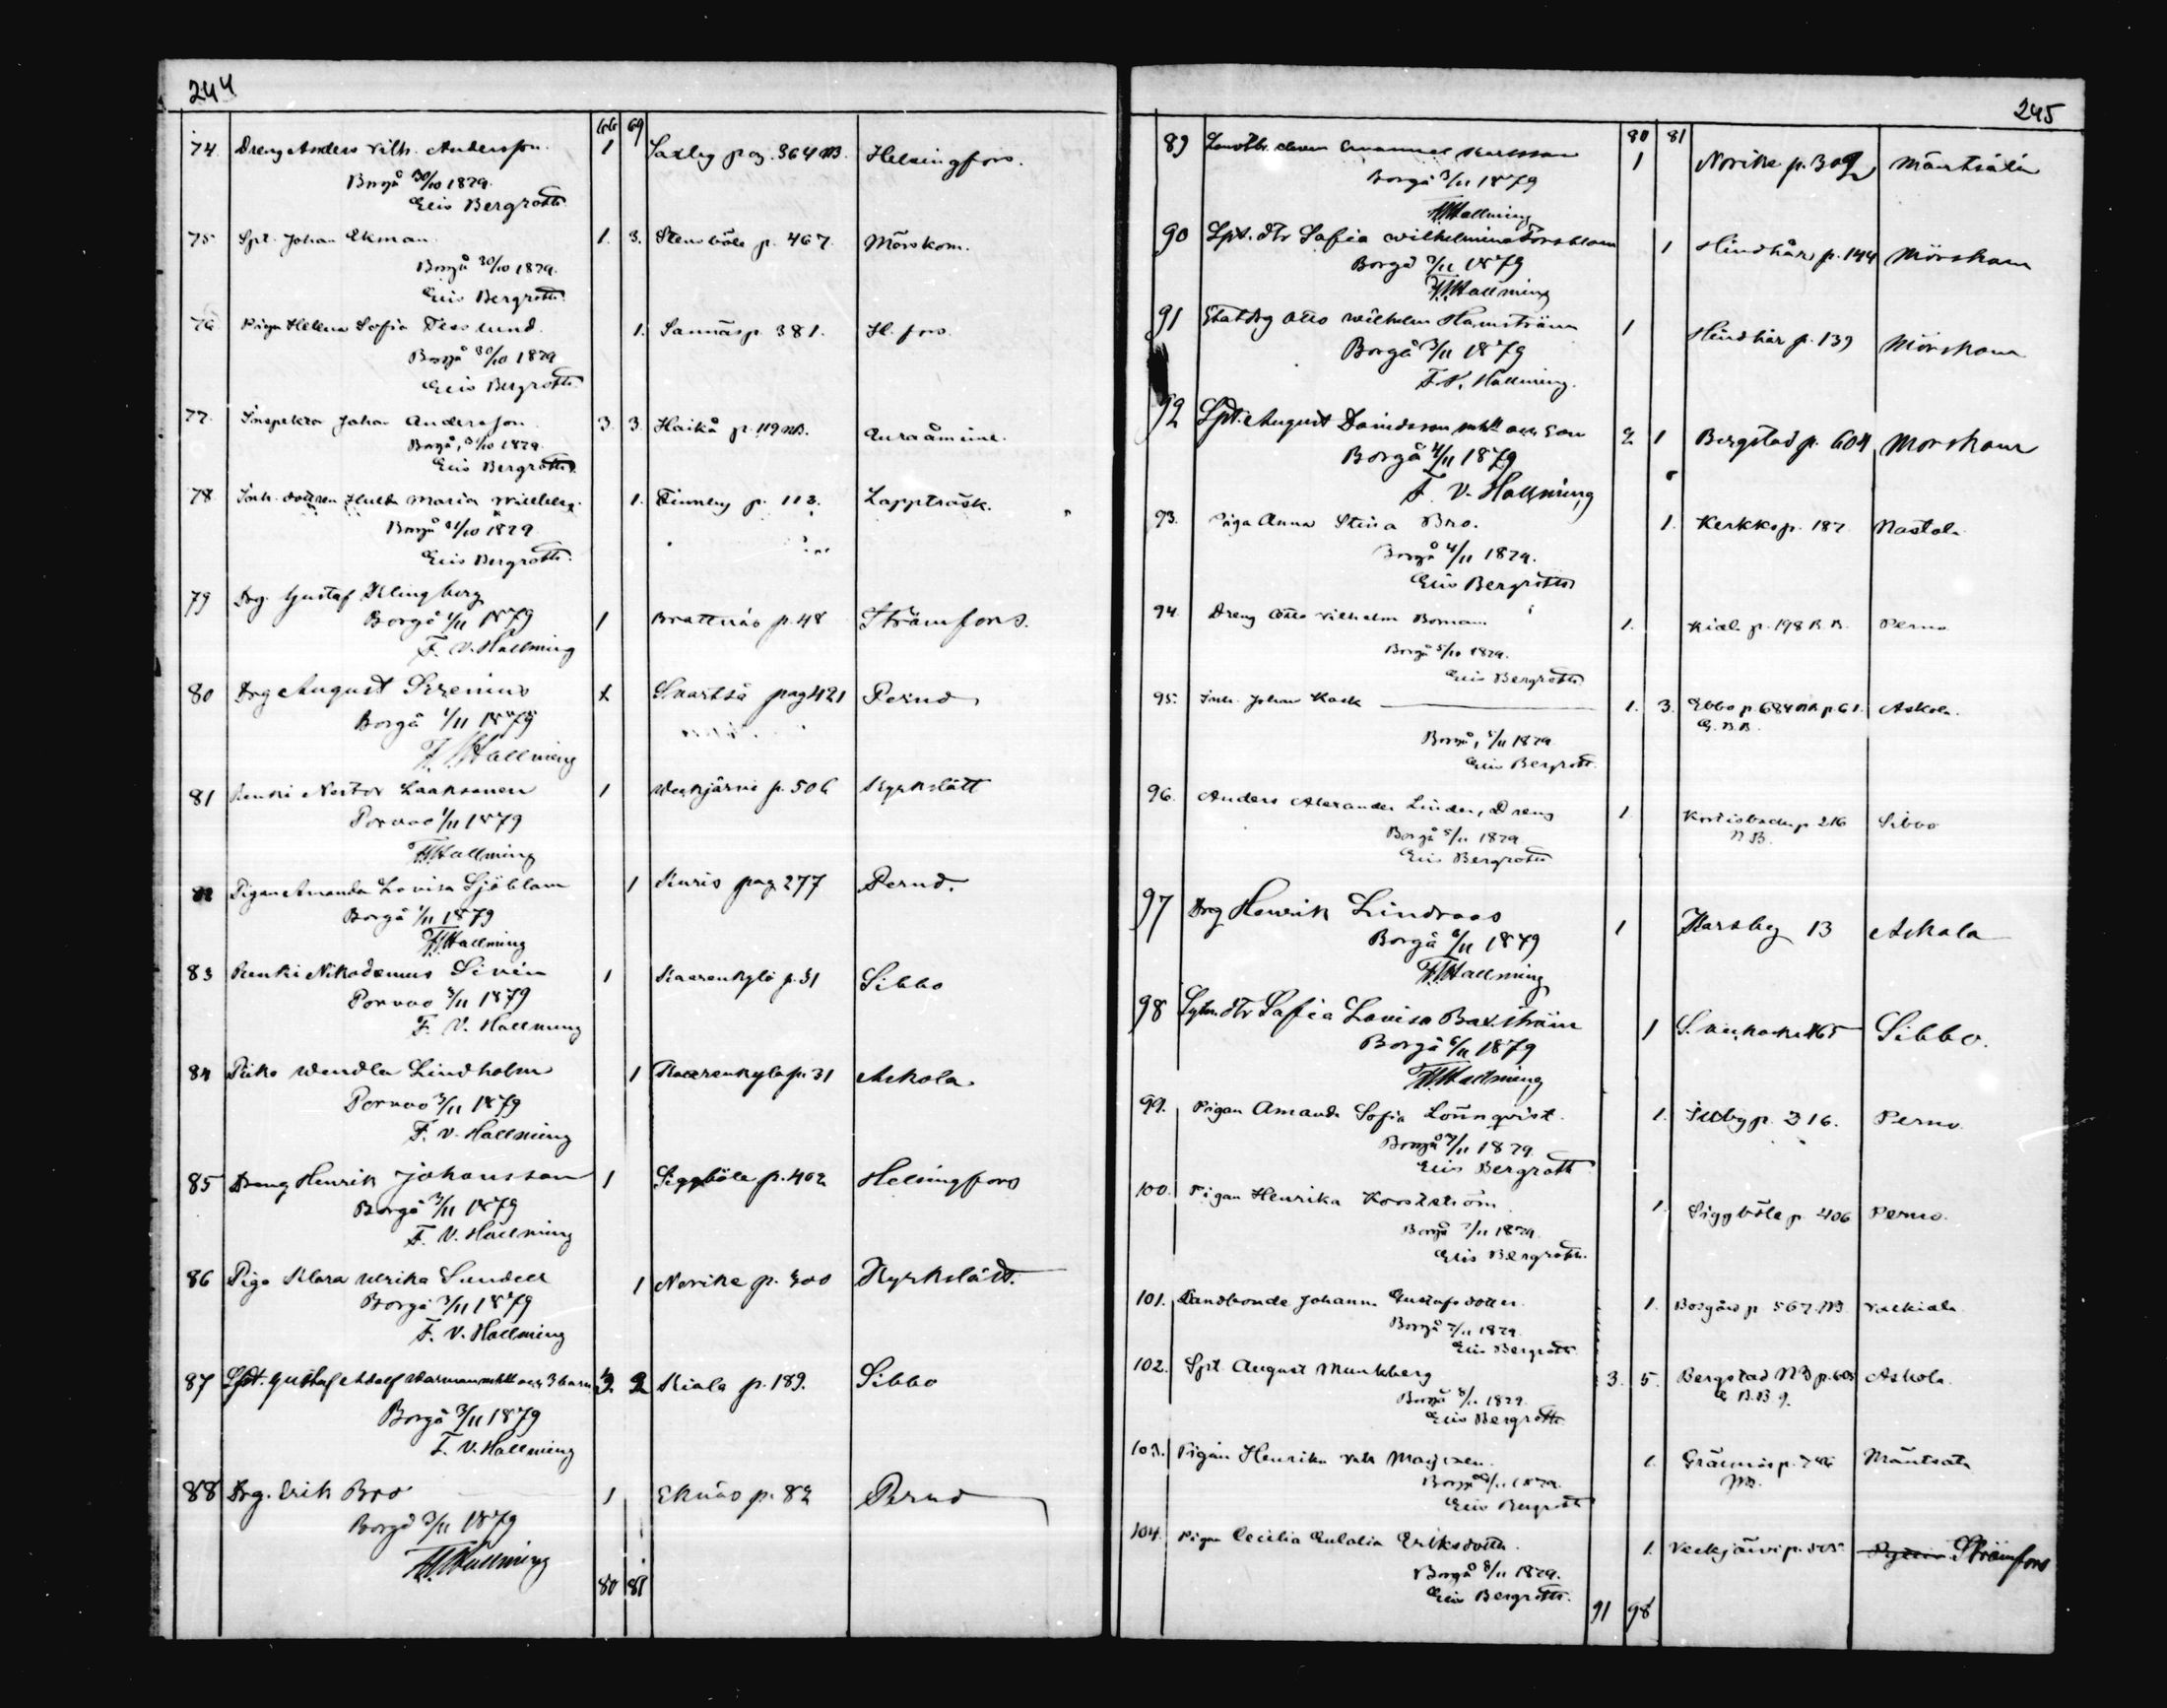 244
66 69
74. Dreng Anders Vilh. Andersson. 1 Saxby pag. 364 NB. Helsingfors.
Borgå 30/10 1879.
Elis Bergroth.
75 Spt. Johan Ekman. 1. 3. Stensböle p. 467. Mörskom.
Borgå 30/10 1879.
Elis Bergroth.
76 Pigan Helena Sofia 1. Sannäs p. 381. H.fors.
Borgå 30/10 1879
Elis Bergroth.
77. Inspektor Johan Andersson. 3. 3. Haikå p. 119 NB.
Borgå, 31/10 1879.
Elis Bergroth.
78. Inh. dottren Hulda Maria 1. Finnby p. 113. Lappträsk.
Borgå 31/10 1879
Elis Bergroth.
79 Drg. Gustaf Klingberg
Borgå 1/11 1879 1 Brattnäs p. 48 Strömfors.
F. V. Hallming
80 Drg August Serenius 1 Svartså pag 421 Pernå
Borgå 1/11 1879
F. V. Hallming
81 Renki Nestor Laaksonen 1 Veckjärvi p. 506 Kyrkslätt
Porvoo 1/11 1879
F. V. Hallming
82 Pigan Amanda Lovisa Sjöblom 1 Kuris pag 277 Pernå.
Borgå 1/11 1879
F. V. Hallming
83 Renki Nikodemus Sivén 1 Kaarenkylä p. 31 Sibbo
Porvoo 3/11 1879
F. V. Hallming
84 Piika Wendla Lindholm 1 Kaarenkylä p. 31 Askola.
Porvoo 3/11 1879
F. V. Hallming
85 Dreng Henrik Johansson 1 Siggböle p. 402 Helsingfors
Borgå 3/11 1879
F. V. Hallming
86 Piga Klara Ulrika Sundell 1 Norike p. 300 Kyrkslätt.
Borgå 3/11 1879
F. V. Hallming
87 Spt. Gustaf Adolf Warman m htt och 3 barn 3 2 Kiala p. 189. Sibbo
Borgå 3/11 1879
F. V. Hallming
88 Drg. Erik Bro 1 Eknäs p. 82 Pernå
Borgå 3/11 1879
F. V. Hallming
80 81
245
80 81
89 Emanuel Karlsson 1 Norike p. 302 Mäntsälä
Borgå 3/11 1879
F. V. Hallming
90 Spt. dtr Sofia Wilhelmina Forsblom 1 Hindhår p. 144 Mörskom
Borgå 3/11 1879
F. V. Hallming
91 Statdrg Otto Wilhelm Holmström 1 Hindhår p. 139 Mörskom
Borgå 3/11 1879
F. V. Hallming.
92 Spt. August Davidsson m htt och son 2 1 Bergstad p. 604 Mörskom
Borgå 4/11 1879
F. V. Hallming
93. Piga Anna Stina Bro. 1. Kerkko p. 187. Nastola
Borgå 4/11 1879.
Elis Bergroth
94. Dreng Otto Vilhelm Boman 1. Kiala p. 198 B.B. Perno
Borgå 5/11 1879.
Elis Bergroth
95. Inh. Johan Kask 1. 3. Ebbo p. 684 NB p 61 Askola.
G. B.B.
Borgå, 5/11 1879
Elis Bergroth.
96. Anders Alexander Linden, Dreng 1 p 216 Sibbo
N.B.
Borgå 5/11 1879
Elis Bergroth
97 Drg Henrik Lindroos 1 Karsby 13 Askola
Borgå 6/11 1879
F. V. Hallming
98 Sytn. dtr Sofia Lovisa Baxström 1 465 Sibbo.
Borgå 6/11 1879
F. V. Hallming
99. Pigan Amanda Sofia Lönnqvist. 1. Illby p. 316. Perno.
Borgå 7/11 1879.
Elis Bergroth
100. Pigan Henrika Korsström 1. Siggböle p. 406 Perno.
Borgå 7/11 1879.
Elis Bergroth.
101. Landbonde Johanna Gustafsdotter. 1. Bosgård p. 567. NB Valkiala
Borgå 7/11 1879.
Elis Bergroth
102. Spt. August Munkberg 3. 5. Bergstad NB p. 603 Askola.
G. B.B 9.
Borgå 8/11 1879.
Elis Bergroth
103. Pigan Henrika 1. Grännäs p. Mäntsälä
NB.
Borgå 8/11 1879.
Elis Bergroth
104. Pigan Cecilia Eulalia Eriksdotter. 1. Veckjärvi p. 505 Strömfors
Borgå 8/11 1879.
Elis Bergroth.
91 98